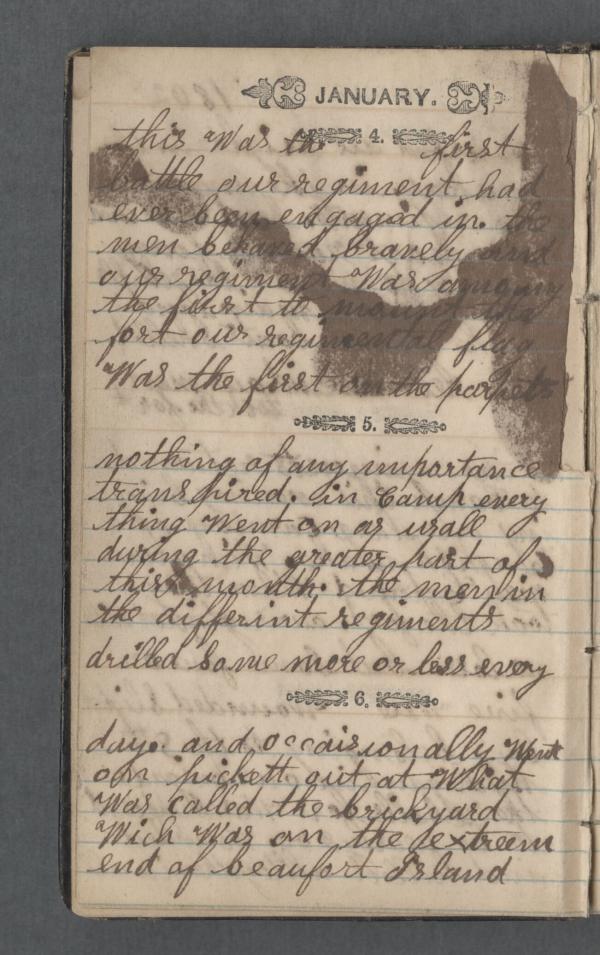 JANUARY.
4.
this Was the first
battle our regiment had
ever been engaged in. the
men behaved bravely and
our regiment Was among
the first to mount the
fort our regimental flag
Was the first on the parpets
5.
nothing of any importance
transpired. in Camp every
thing Went on as usall
during the greater part of
this month. the men in
the differint regiments
drilled Some more or less every
6.
day. and occaisionally Went
on pickett out at What
Was called the brickyard
Wich Was on the extreem
end of beaufort Island